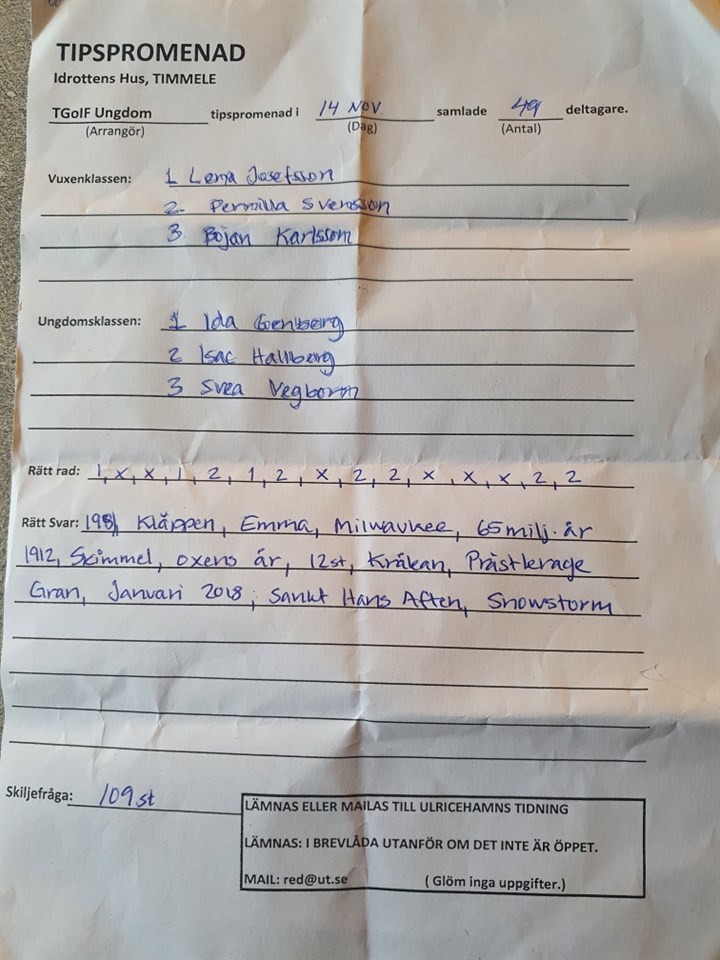 TIPSPROMENAD
Idrottens Hus, TIMMELE
TGoIF Ungdom tipspromenad i 14 NOV. samlade 49 deltagare.
(Arrangör) (Dag) (Antal)
Vuxenklassen: 1 Lena Josefsson
2. Pernilla Svensson
3 Bojan Karlsson
Ungdomsklassen: 1 Ida Genberg
2 Isac Hallberg
3 Svea Vegborn
Rätt rad: 1, X, X, 1, 2, 1, 2, X, 2, 2, X, X, X, 2, 2
Rätt Svar: 1981, Kläppen, Emma, Milwaukee, 65 milj. år
1912, Skimmel, oxens år, 12st, Kråkan, Prästkrage
Gran, Januari 2018, Sankt Hans Aften, Snowstorm
Skiljefråga: 109 st
LÄMNAS ELLER MAILAS TILL ULRICEHAMNS TIDNING
LÄMNAS: I BREVLÅDA UTANFÖR OM DET INTE ÄR ÖPPET.
MAIL: red@ut.se (Glöm inga uppgifter.)